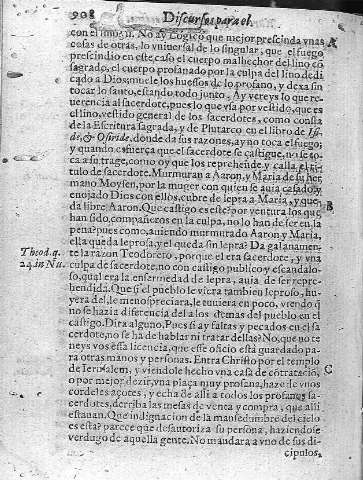 908 Discursos para el
con el mogu. No ay Logico que mejor prescinda vnas A
cosas de otras, lo vniuersal de lo singular, que el fuego
prescindio en este caso el cuerpo malhechor del lino co
sagrado, el cuerpo profanado por la culpa del lino dedi
cado a Dios; muele los huessos de lo profano, y dexa sin
tocar lo santo, estando todo junto. Ay vereys lo que re-
uerencia al sacerdote, pues lo que vsa por vestido, que es
el lino, vestido general de los sacerdotes, como consta
de la Escritura sagrada, y de Plutarco en el libro de Isi-
de, & Osiride, donde da sus razones, ay no toca el fuego;
y quando es fuerça que el sacerdote se castigue, no se to-
ca a su trage, como oy que los reprehende y calla el ti-
tulo de sacerdote. Murmuran a Aaron, y Maria de su her
mano Moysen, por la muger con quien se auia casado, y
enojado Dios con ellos, cubre de lepra a Maria, y que- B
da libre Aaron. Que castigo es este? por ventura los que
han sido compañeros en la culpa, no lo han de ser en la
pena? pues como, auiendo murmurado Aaron y Maria,
ella queda leprosa, y el queda sin lepra? Da galanamen-
Theod. q. te la razon Teodoreto, porque el era sacerdote, y vna
24. in Nu. culpa de sacerdote, no con castigo publico y escandalo-
so, qual era la enfermedad de lepra, auia de ser repre-
hendida. Que si el pueblo le viera tambien leproso, hu-
yera del, le menospreciara, le tuuiera en poco, viendo q̃
no se hazia diferencia del a los demas del pueblo en el
castigo. Dira alguno. Pues si ay faltas y pecados en el sa
cerdote, no se ha de hablar ni tratar dellas? No, que no te
neys vos essa licencia, que este oficio està guardado pa-
ra otras manos y personas. Entra Christo por el templo
de Ierusalem, y viendole hecho vna casa de cõtrataciõ, C
o por mejor dezir, vna plaça muy profana, haze de vnos
cordeles açotes, y echa de alli a todos los profanos sa-
cerdotes, derriba las mesas de venta y compra, que alli
estauan. Que indignacion de la mansedumbre del cielo
es esta? parece que desautoriza su persona, haziendose
verdugo de aquella gente. No mandara a vno de sus di-
cipulos,